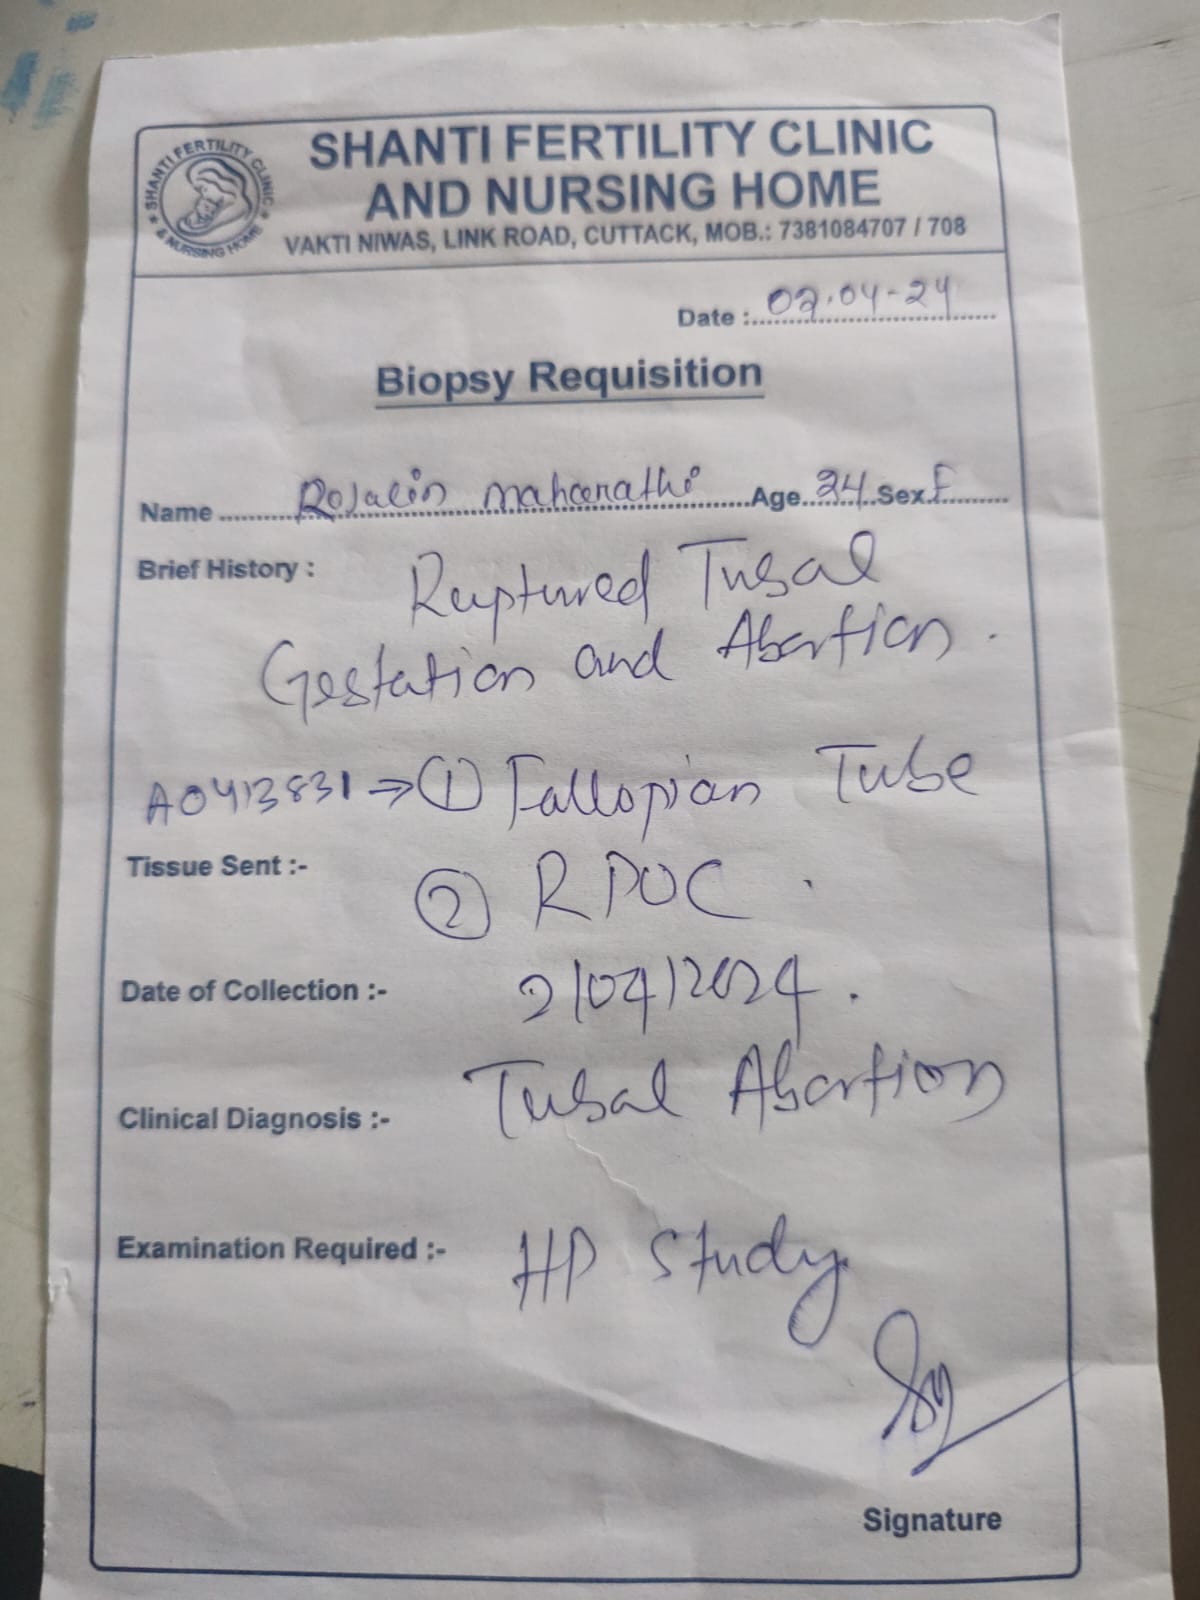 SHANTI FERTILITY CLINIC
AND NURSING HOME
VAKTI NIWAS, LINK ROAD, CUTTACK, MOB.: 7381084707 / 708
SHANTI FERTILITY CLINIC
& NURSING HOME
Date : 02.04-24
Biopsy Requisition
Name Rojalin maharathi Age 24 Sex F
Brief History : Ruptured Tubal
Gestation and Abortion.
A0413831 ⇒ ① Fallopian Tube
Tissue Sent :- ② RPOC.
Date of Collection :- 2/04/2024.
Clinical Diagnosis :- Tubal Abortion
Examination Required :- HP Study
Signature